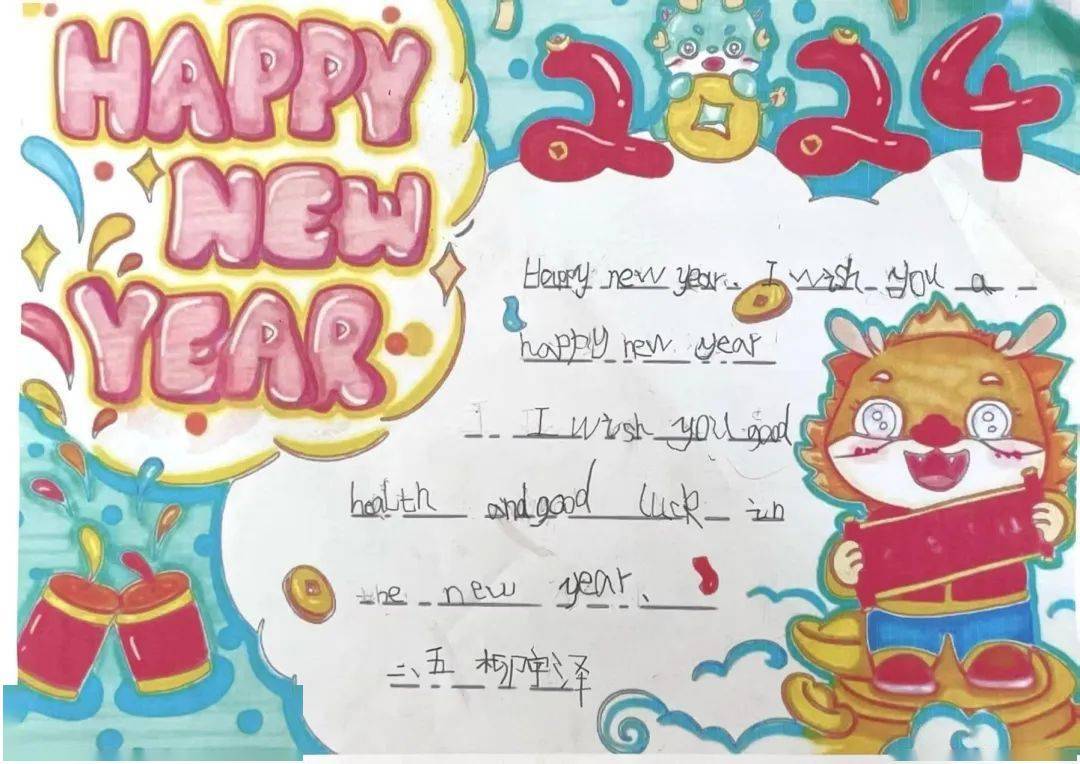 HAPPY
NEW
YEAR
2024
Happy new year. I wish you a
happy new year
I wish you good
health and good luck in
the new year.
二、五
泽